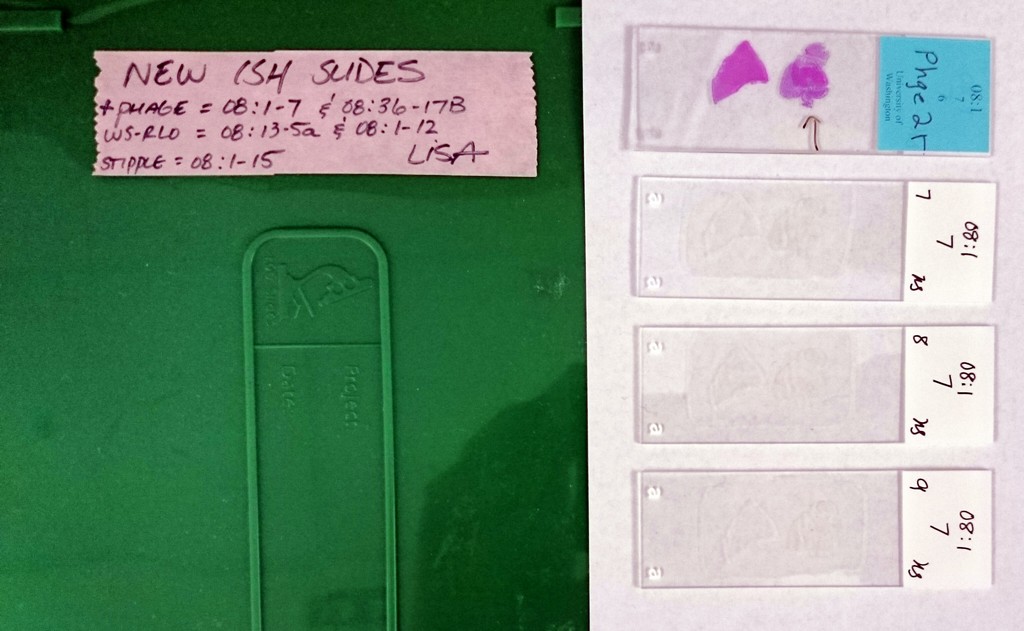 NEW ISH SLIDES
+PHAGE = 08:1-7 & 08:36-17B
WS-RLO = 08:13-5a & 08:1-12
STIPPLE = 08:1-15 LISA
Project
Date
08:1
7
6
University of
Washington
08:1
7
7
08:1
7
8
08:1
7
9